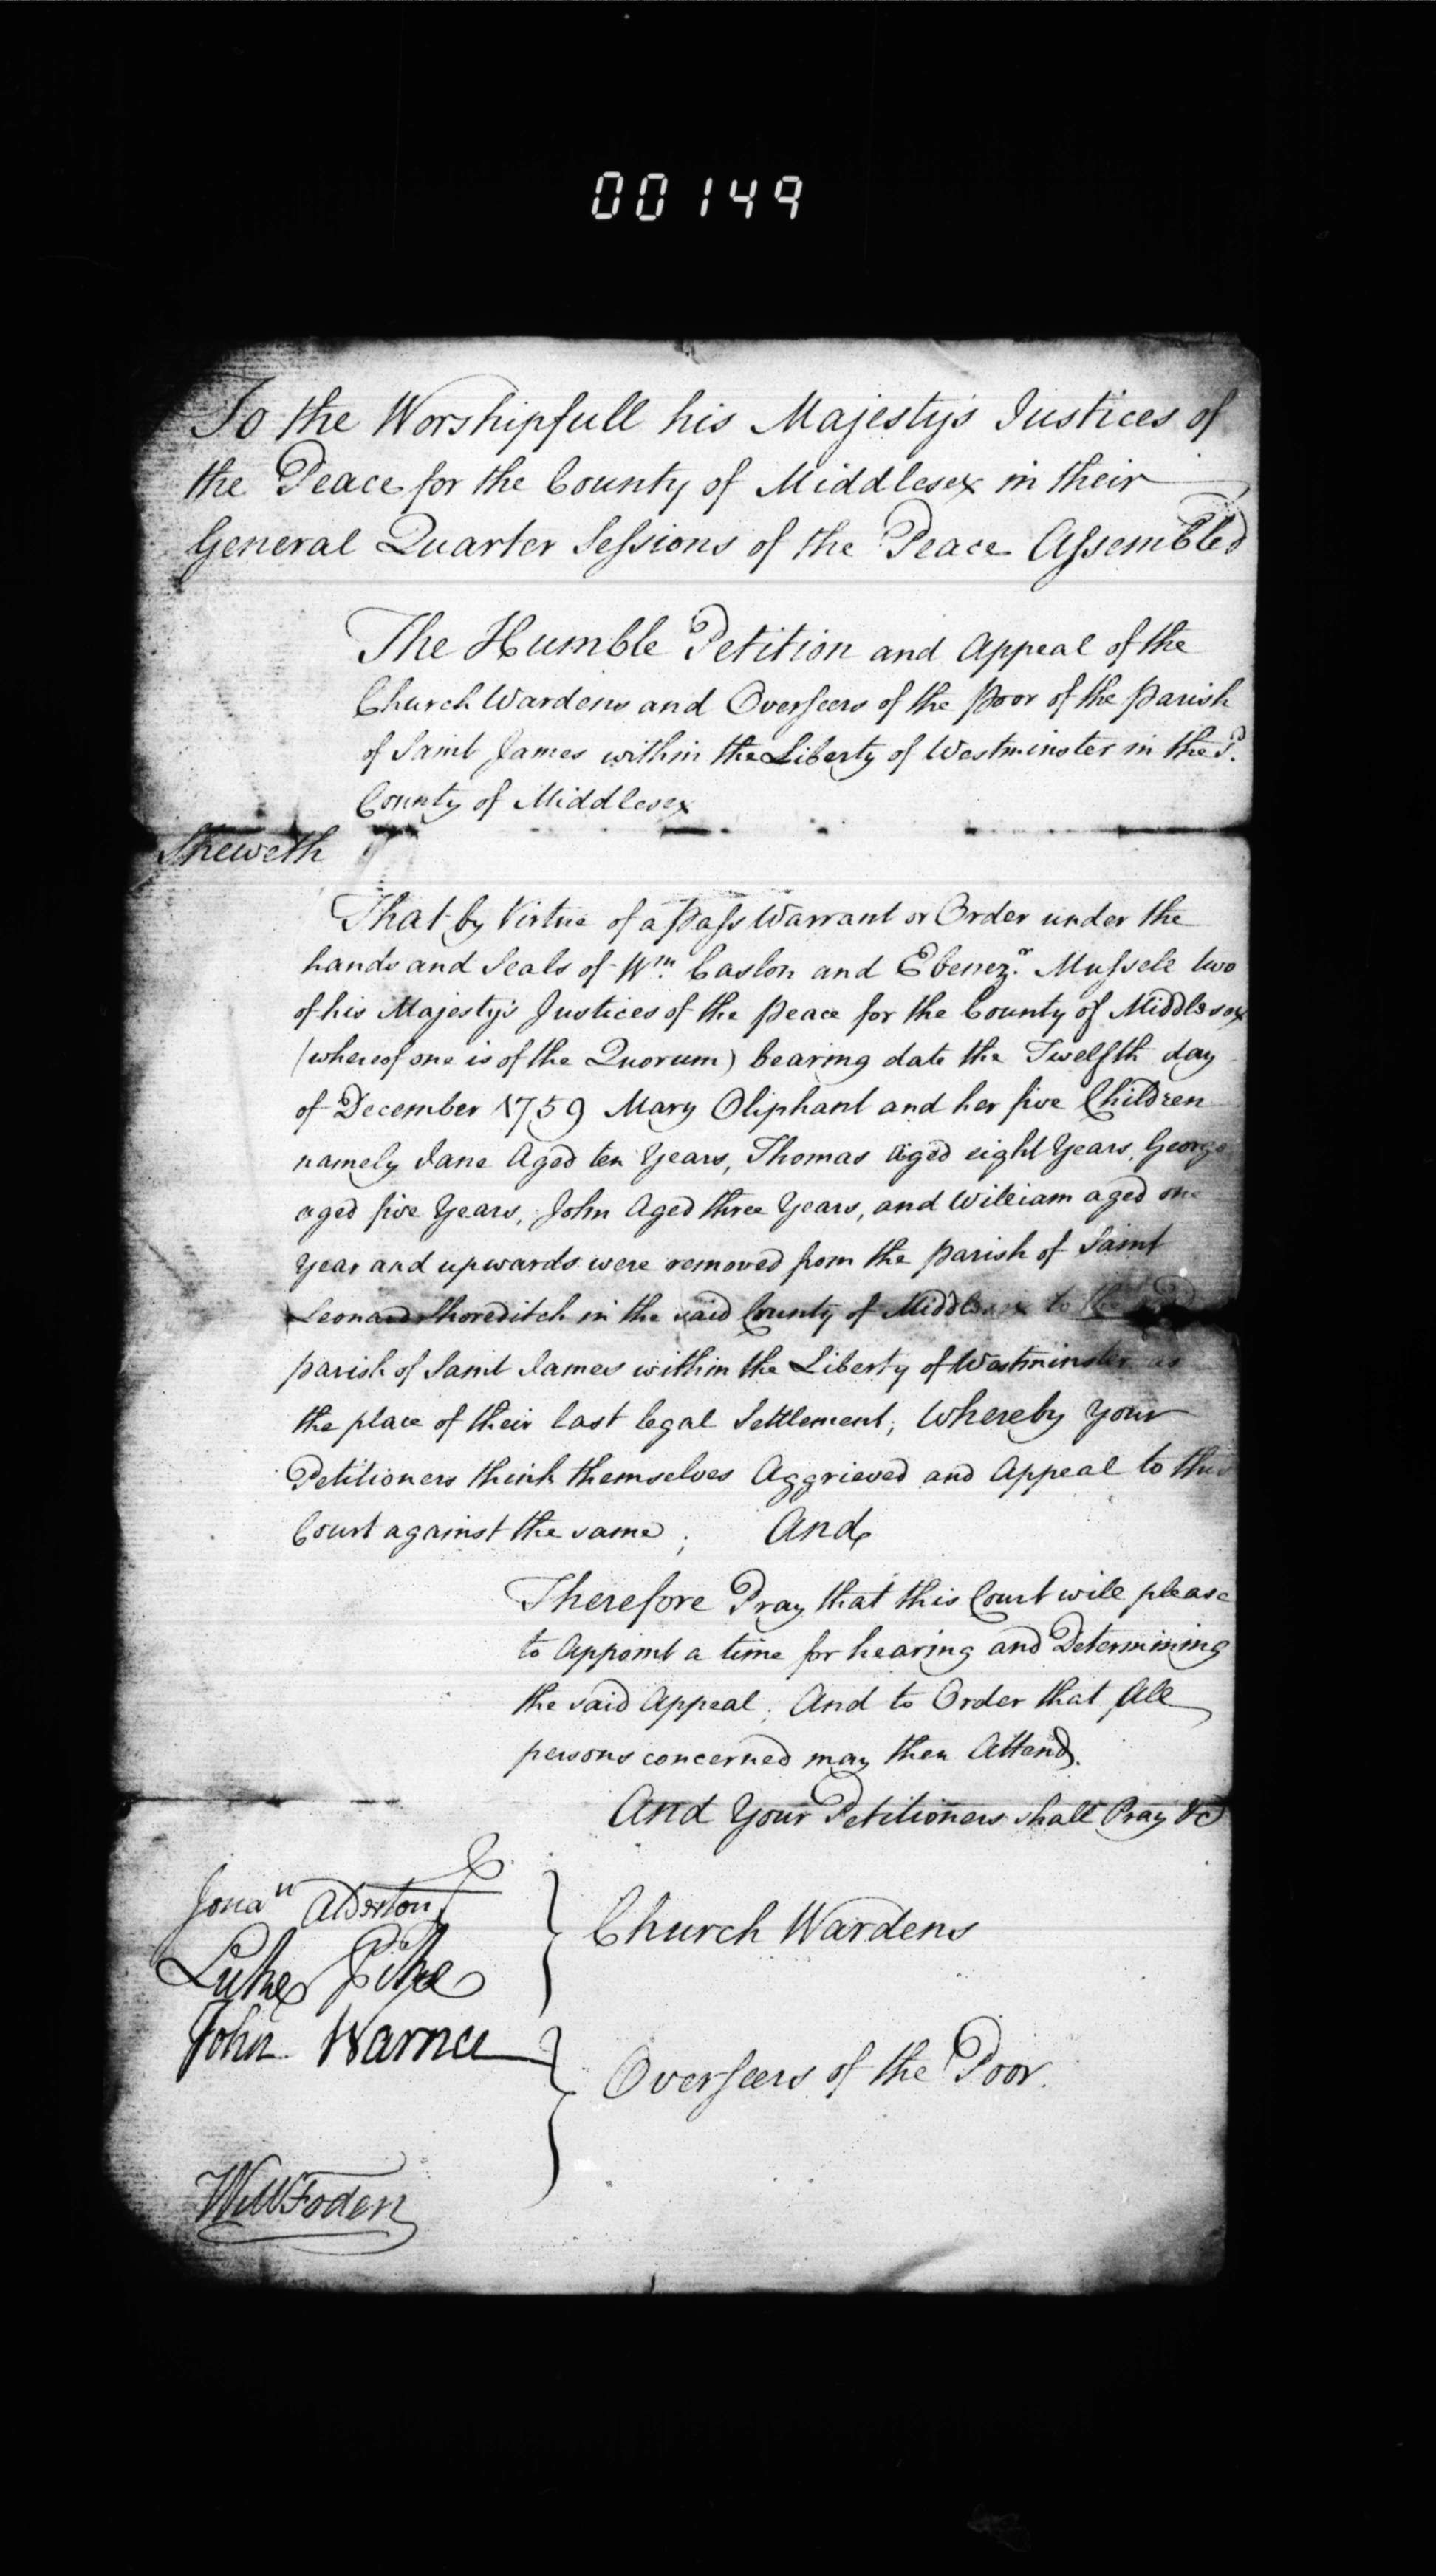 00149
To the Worshipfull his Majesty's Justices of
the Peace for the County of Middlesex in their
General Quarter Sessions of the Peace Assembled
The Humble Petition and Appeal of the
Church Wardens and Overseers of the Poor of the Parish
of Saint James within the Liberty of Westminster in the sd.
County of Middlesex
Sheweth
That by Virtue of a Pass Warrant or Order under the
hands and Seals of Wm. Caslon and Ebenezr. Mussell two
of his Majesty's Justices of the Peace for the County of Middlesex
(whereof one is of the Quorum) bearing date the Twelfth day
of December 1759 Mary Oliphant and her five Children
namely Jane Aged ten Years, Thomas aged eight Years, George
aged five Years, John Aged three Years, and William aged one
Year and upwards were removed from the parish of Saint
Leonard Shoreditch in the said County of Middlesex to the
parish of Saint James within the Liberty of Westminster as
the place of their last legal Settlement, Whereby Your
Petitioners think themselves Aggrieved and Appeal to this
Court against the same; And
Therefore Pray that this Court will please
to Appoint a time for hearing and Determining
the said Appeal; And to Order that All
persons concerned may then Attend.
And Your Petitioners shall Pray &c
Jonan Alderton
Luke Pike
Church Wardens
John Warner
Overseers of the Poor.
Will Foden